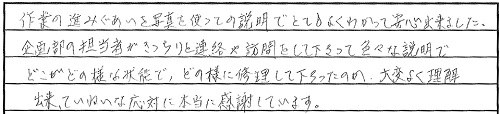 作業の進みぐあいを写真を使っての説明でとてもよくわかって安心出来ました。
企画部の担当者がきっちりと連絡や訪問をして下さって色々な説明で
どこがどの様な状態で、どの様に修理して下さったのか、大変よく理解
出来、ていねいな応対に本当に感謝しています。